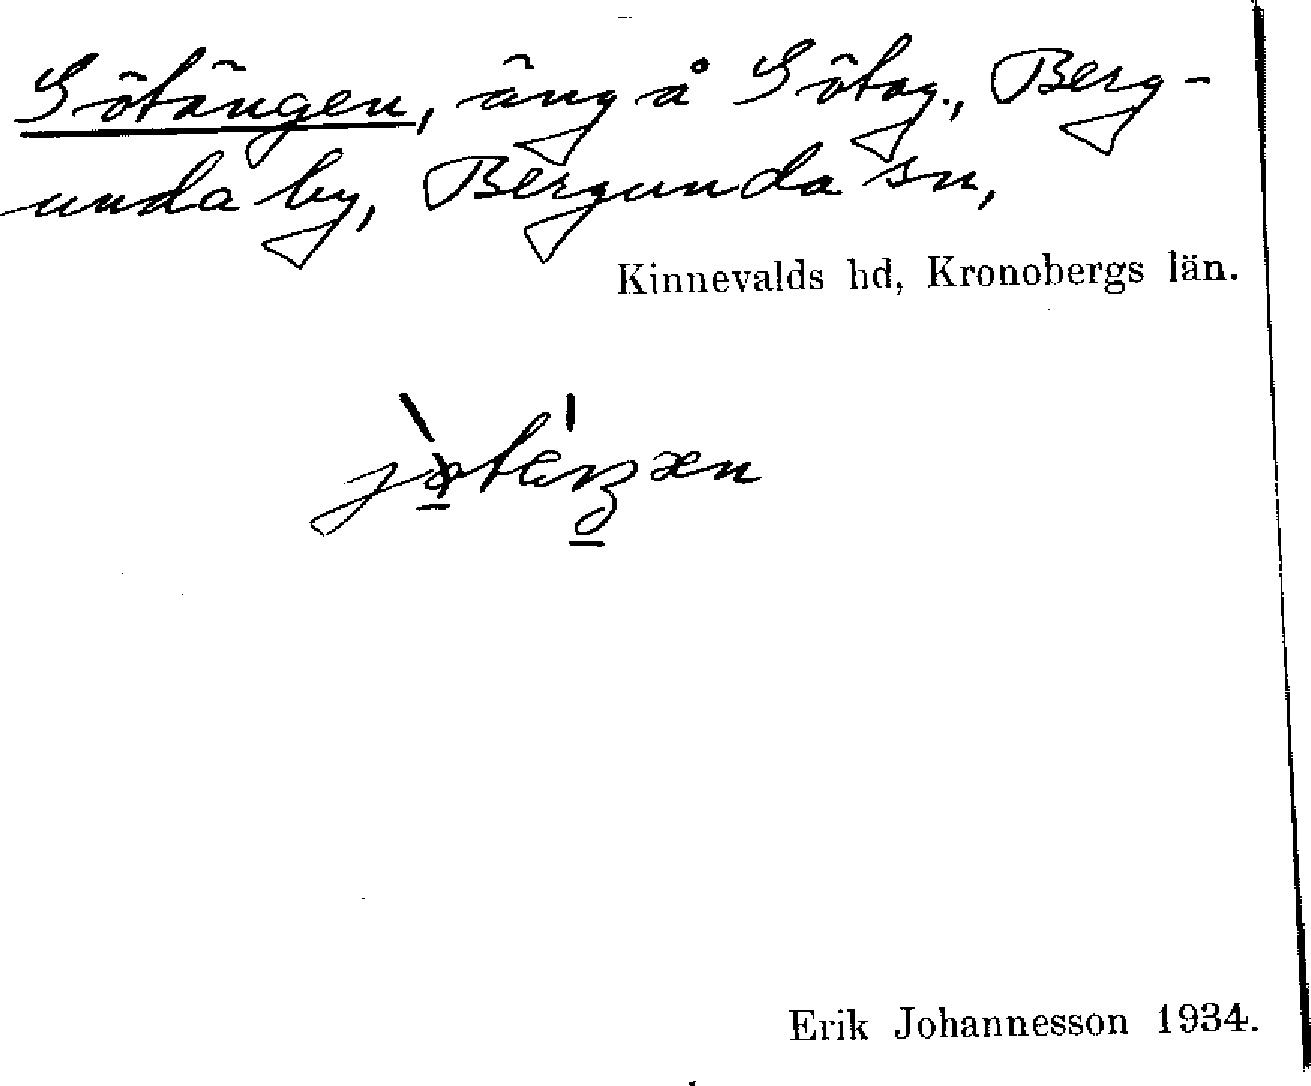 Götängen, äng å Götag., Berg-
unda by, Bergunda sn,
Kinnevalds hd, Kronobergs län.
Erik Johannesson 1934.